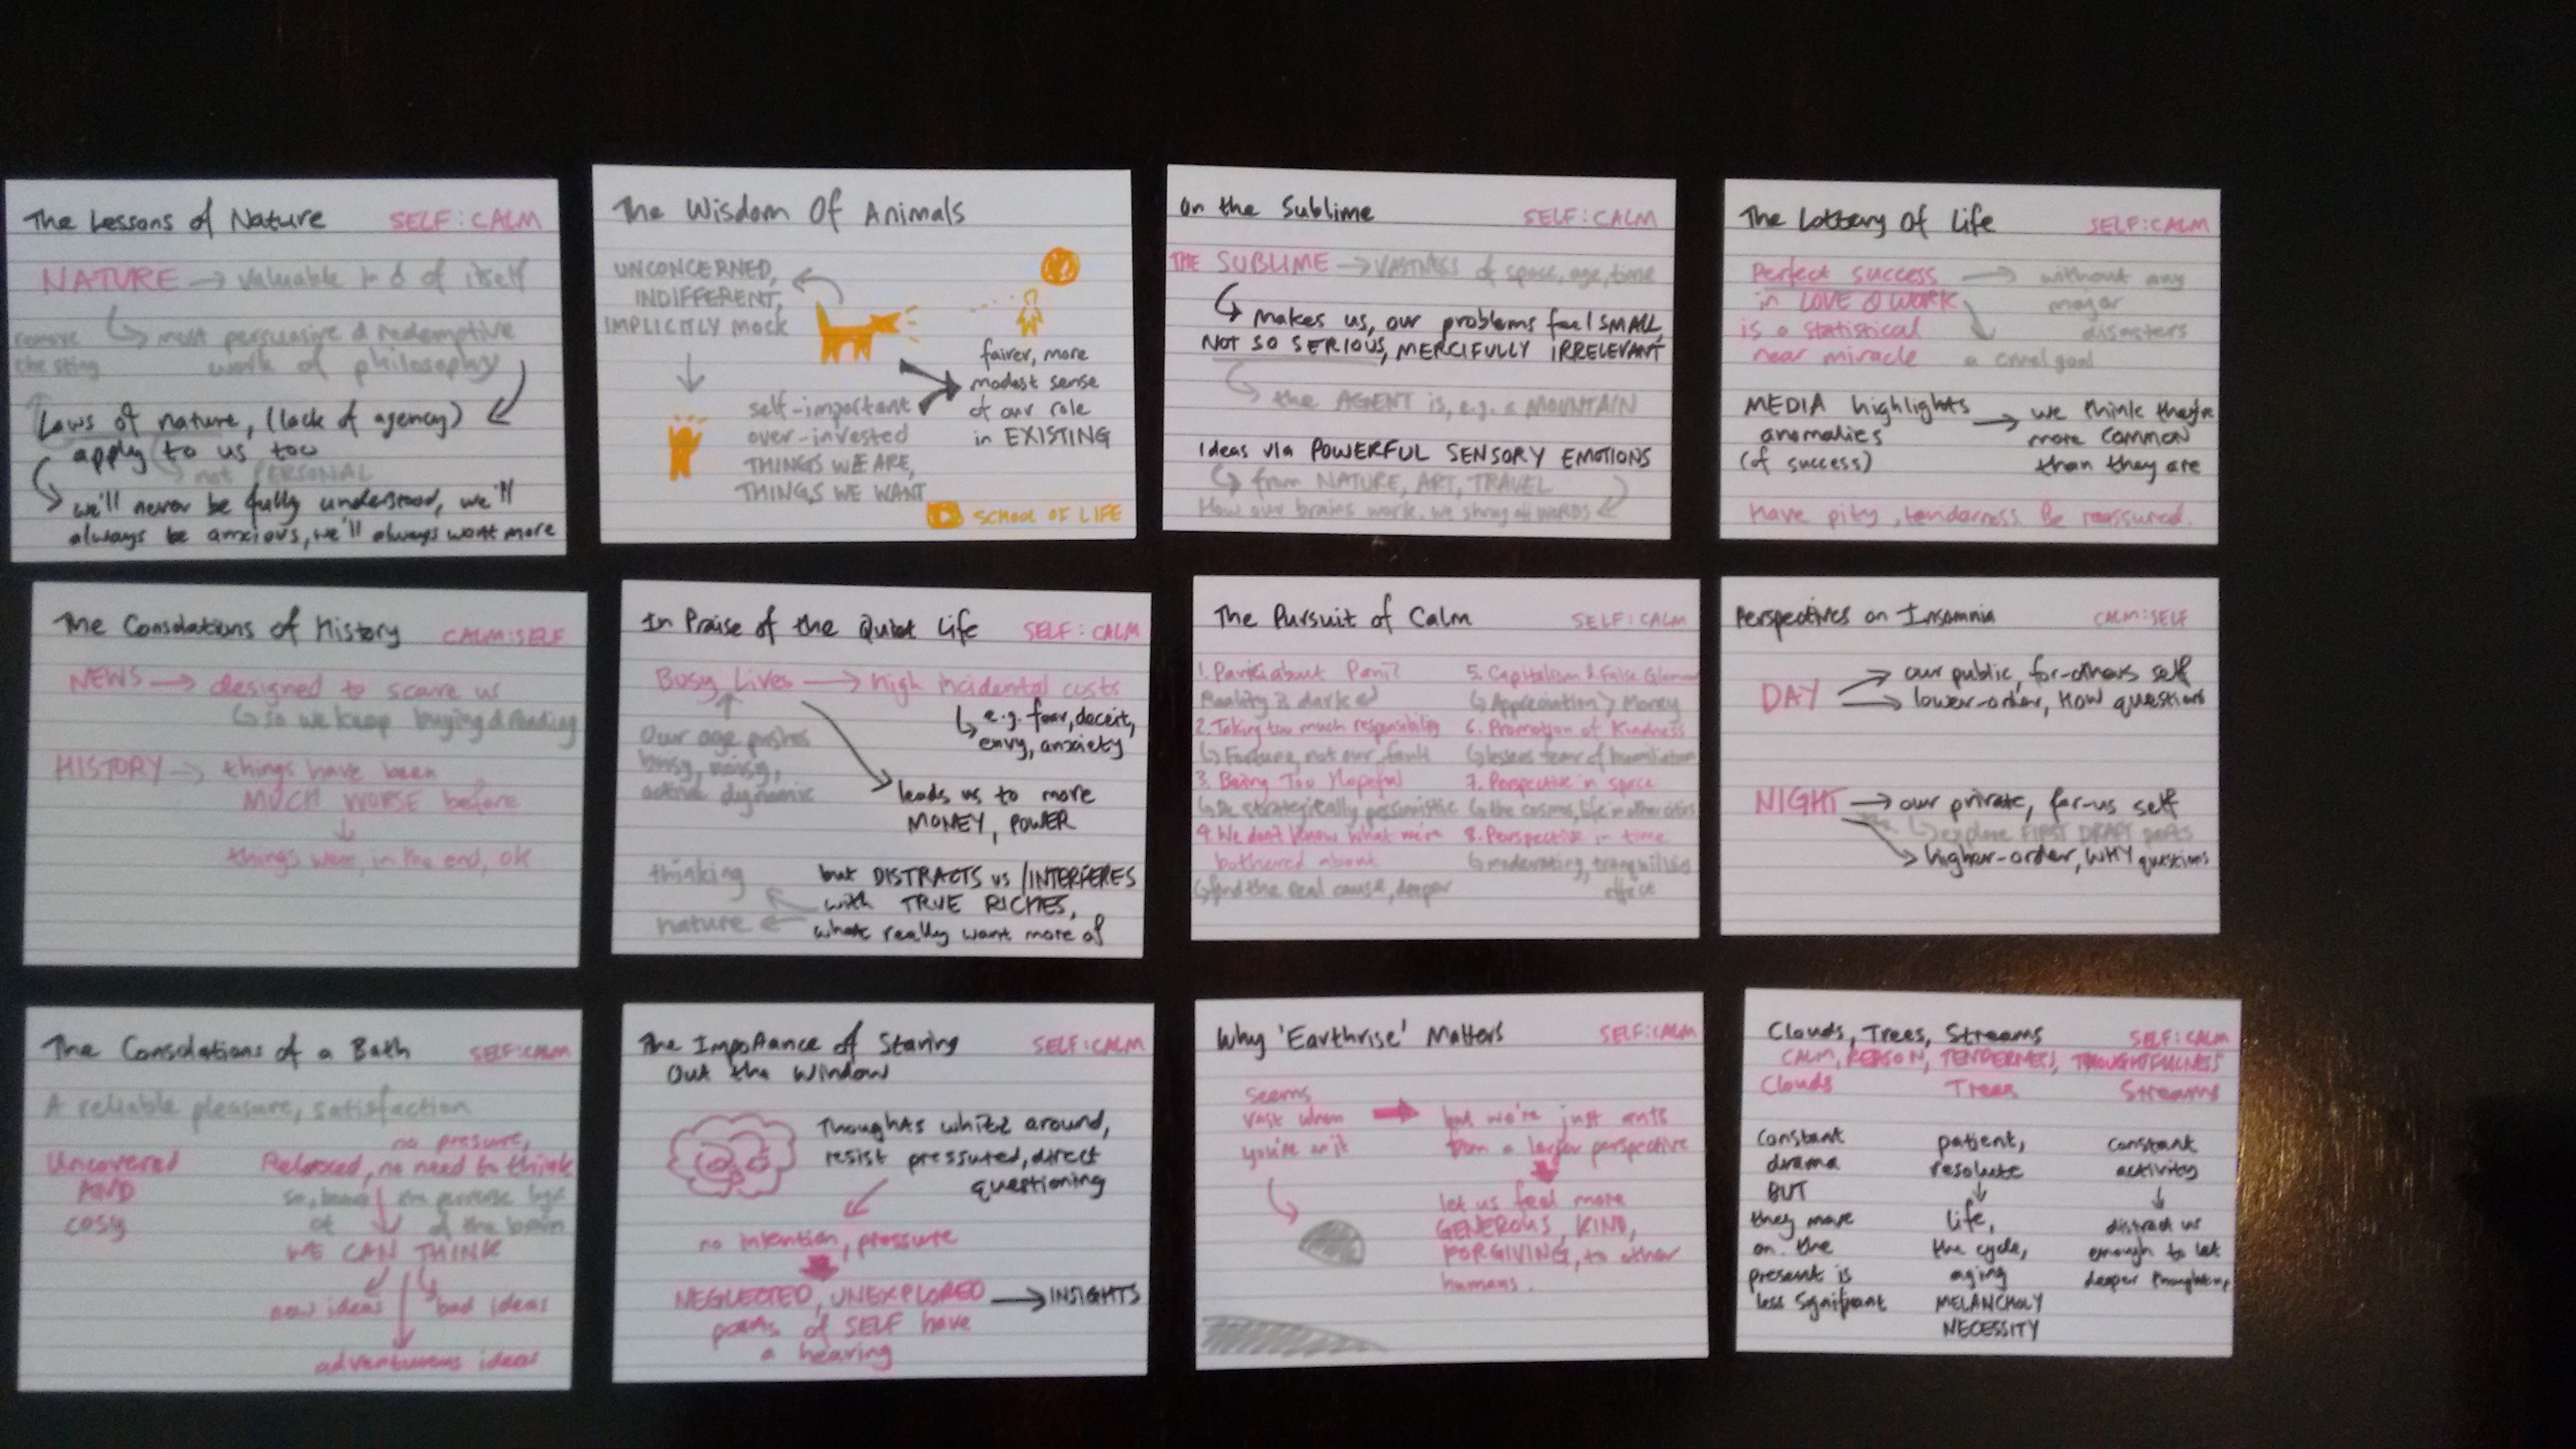 The Lessons of Nature SELF:CALM
NATURE → valuable of itself
remove
the sting
most persuasive & redemptive
work of philosophy
Laws of nature, (lack of agency)
apply to us too
not PERSONAL
we'll never be fully understood, we'll
always be anxious, we'll always want more
The Wisdom Of Animals
UNCONCERNED,
INDIFFERENT,
IMPLICITLY Mock
self-important
over-invested
THINGS WE ARE,
THINGS WE WANT
fairer, more
modest sense
of our role
in EXISTING
SCHOOL OF LIFE
On the Sublime SELF:CALM
THE SUBLIME → VASTNESS of space, age, time
makes us, our problems feel SMALL,
NOT SO SERIOUS, MERCIFULLY IRRELEVANT
the AGENT is, e.g. a MOUNTAIN
Ideas via POWERFUL SENSORY EMOTIONS
from NATURE, ART, TRAVEL
How our brains work. we shrug off WORDS
The Lottery Of Life SELF:CALM
Perfect success
in LOVE & WORK
is a statistical
near miracle
→ without any
major
disasters
a cruel goal
MEDIA highlights
anomalies
(of success)
→ we think they're
more COMMON
than they are
Have pity, tenderness. Be reassured.
The Consolations of History CALM:SELF
NEWS → designed to scare us
so we keep buying & reading
HISTORY → things have been
MUCH WORSE before
things were, in the end, ok
In Praise of the Quiet Life SELF:CALM
Busy Lives → high incidental costs
e.g. fear, deceit,
envy, anxiety
Our age pushes
busy, noisy,
active dynamic
leads us to more
MONEY, POWER
but DISTRACTS us/INTERFERES
with TRUE RICHES,
what really want more of
thinking
nature
The Pursuit of Calm SELF:CALM
1. Panic about Panic
Reality is dark
2. Taking too much responsibility
Fortune, not our fault
3. Being Too Hopeful
Be strategically pessimistic
4. We don't know what we're
bothered about
find the real cause, deeper
5. Capitalism & False Glamour
Appreciation > Money
6. Promotion of Kindness
lessens fear of humiliation
7. Perspective in space
the cosmos, life in other cities
8. Perspective in time
moderating, tranquilising
effect
Perspectives on Insomnia CALM:SELF
DAY → our public, for-others self
→ lower-order, HOW questions
NIGHT → our private, for-us self
explore FIRST DRAFT parts
→ higher-order, WHY questions
The Consolations of a Bath SELF:CALM
A reliable pleasure, satisfaction
Uncovered
AND
cosy
no presure,
Relaxed, no need to think
so, perverse logic
of the brain
WE CAN THINK
new ideas bad ideas
adventurous ideas
The Importance of Staring SELF:CALM
Out the Window
Thoughts whizz around,
resist pressured, direct
questioning
no intention, pressure
NEGLECTED, UNEXPLORED → INSIGHTS
parts of SELF have
a hearing
Why 'Earthrise' Matters SELF:CALM
Seems
vast when
you're on it
but we're just ants
from a larger perspective
let us feel more
GENEROUS, KIND,
FORGIVING, to other
humans.
Clouds, Trees, Streams SELF:CALM
CALM, REASON, TENDERNESS, THOUGHTFULNESS
Clouds Trees Streams
constant
drama
BUT
they move
on. the
present is
less significant
patient,
resolute
life,
the cycle,
aging
MELANCHOLY
NECESSITY
constant
activity
distract us
enough to let
deeper thoughts in